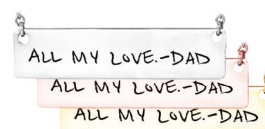 ALL MY LOVE.-DAD
ALL MY LOVE.-DAD
ALL MY LOVE.-DAD